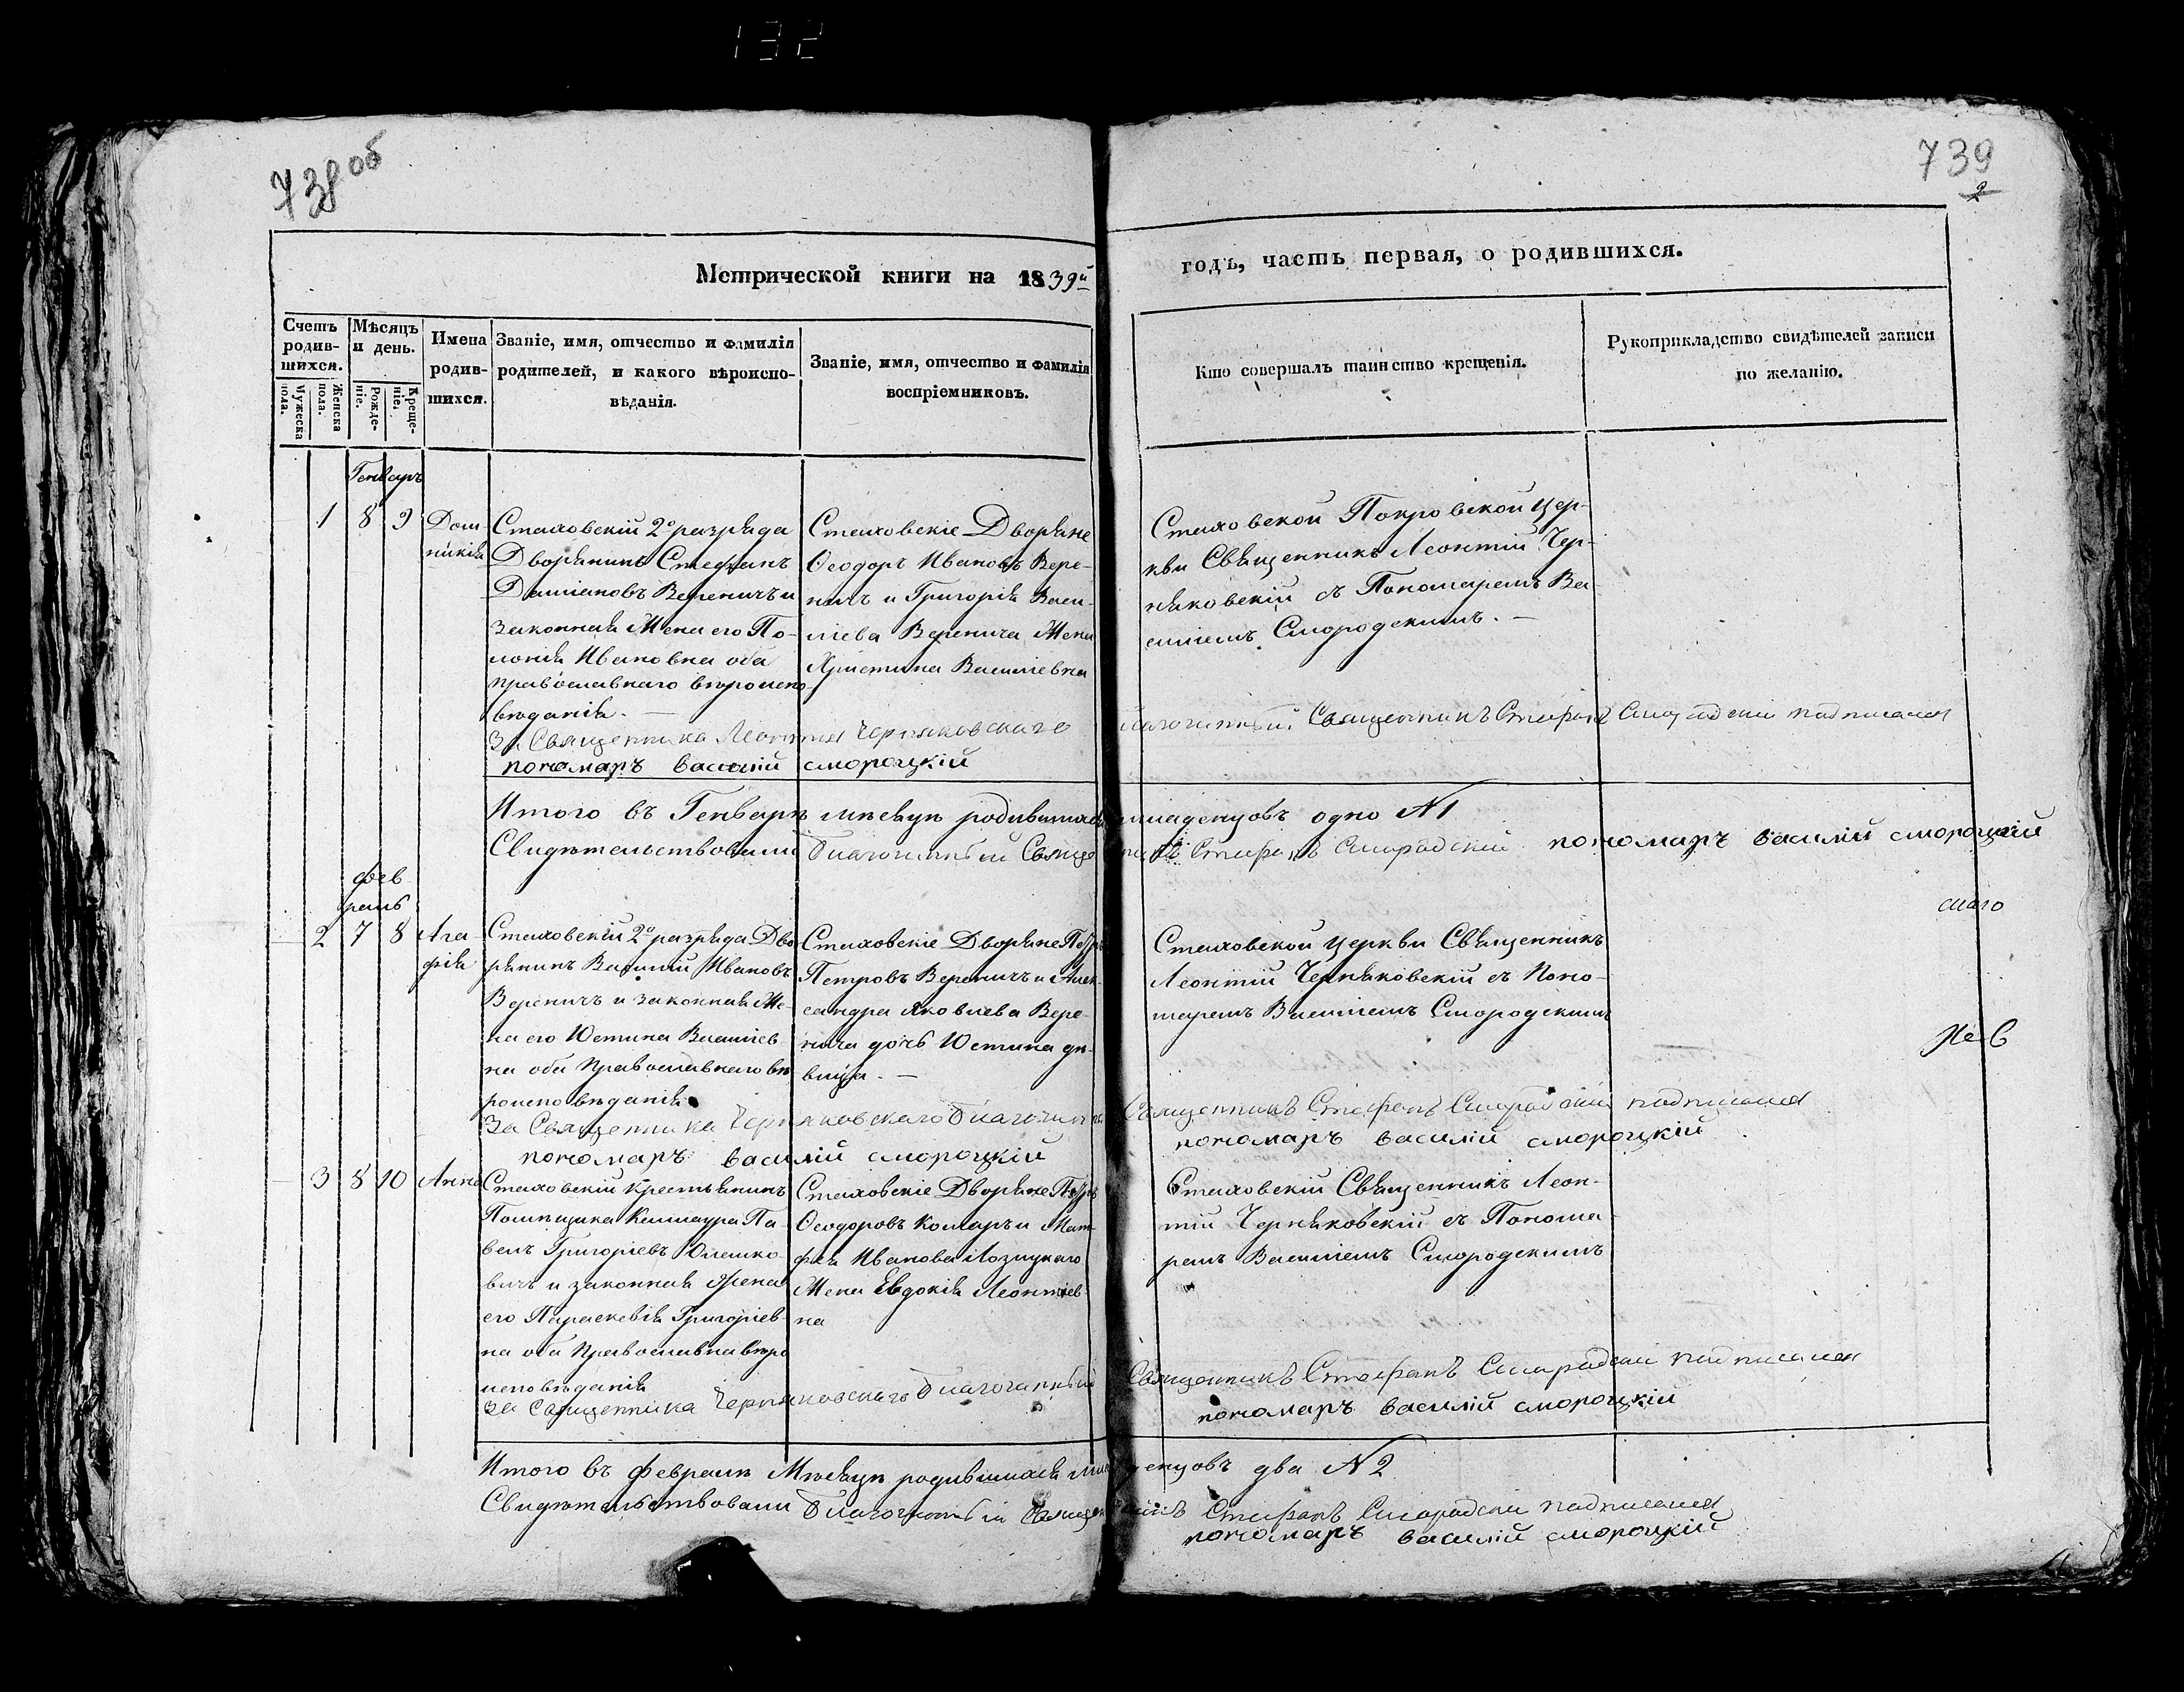 132
738 об
739
2
Метрической книги на 1839й
годъ, часть первая, о родившихся.
Счетъ родив-шихся.
Мужеска пола.
Женска пола.
Мѣсяцъ и день.
Рожде-ніе.
Креще-ніе.
Имена родив-шихся.
Званіе, имя, отчество и фамилія
родителей, и какого вѣроиспо-
вѣданія.
Званіе, имя, отчество и фамилія
воспріемниковъ.
Кто совершалъ таинство крещенія.
Рукоприкладство свидѣтелей записи
по желанію.
Генварь
1 8 9
Дом
никія
Стаховскій 2о разряда
Дворянинъ Стефанъ
Даміановъ Вереничъ и
законная Жена его По-
лонія Ивановна оба
православнаго вѣроиспо-
вѣданія. —
Стаховскіе Дворяне
Ѳеодоръ Ивановъ Вере-
ничъ и Григорія Васи-
лева Веренича Жена
Христина Василіевна
Стаховской Покровской Цер-
кви Священникъ Леонтій Чер-
няковскій съ Пономаремъ Ва
силіемъ Смородскимъ. —
За Священника Леонтія Черняковскаго
Благочинный Священникъ Стефанъ Смородскій подписался
пономаръ василій смороцкій
Итого въ Генварѣ мѣсяцѣ родившихся младенцовъ одно №1
Свидѣтельствовали Благочинный Священникъ Стефанъ Смородскій пономаръ василій смороцкій
фев
раль
2 7 8
Ага
фія
Стаховскій 2о разряда Дво
рянинъ Василій Ивановъ
Вереничъ и законная Же-
на его Юстина Василіев-
на оба Православнаго вѣ
роисповѣданія
Стаховскіе Дворяне Петръ
Петровъ Вереничъ и Алек-
сандра Яковлева Вере-
нича дочь Юстина дѣ-
вица. —
Стаховской церкви Священникъ
Леонтій Черняковскій съ Поно-
маремъ Василіемъ Смородскимъ
За Священника Черняковскаго Благочинный Священникъ Стефанъ Смородскій подписался
пономаръ василій смороцкій
пономаръ василій смороцкій
3 8 10
Анна
Стаховскій крестьянинъ
Помѣщика Келлаура Па-
велъ Григоріевъ Юлешко-
вичъ и законная Жена
его Параскевія Григоріев-
на оба Православна вѣро
исповѣданія
Стаховскіе Дворяне Петръ
Ѳеодоровъ Комаръ и Мат-
фея Иванова Лозицкаго
Жена Евдокія Леонтіев-
на
Стаховскій Священникъ Леон-
тій Черняковскій съ Понома
ремъ Василіемъ Смородскимъ
За Священника Черняковскаго Благочинный Священникъ Стефанъ Смородскій подписался
пономаръ василій смороцкій
Итого въ Февралѣ Мѣсяцѣ родившихся младенцовъ два №2
Свидѣтельствовали Благочинный Священникъ Стефанъ Смородскій подписался
пономаръ василій смороцкій